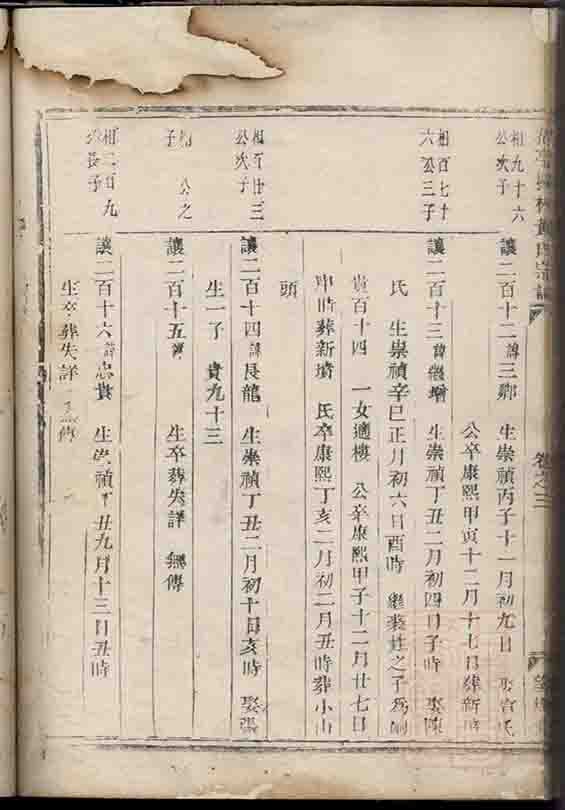 卷之三
相九十六
公次子
讓二百十二諱三 生崇禎丙子十一月初九日
公卒康熙甲寅十二月十七日葬新
相百七十
六公三子
讓二百十三諱 生崇禎丁丑二月初四日子時 娶陳
氏 生崇禎辛巳正月初六日酉時 繼 姓之子爲嗣
貴百十四 一女適樓 公卒康熙甲子十二月廿七日
申時葬新墳 氏卒康熙丁亥二月初二月丑時葬小山
頭
相百廿三
公次子
讓二百十四諱良龍 生崇禎丁丑二月初十日亥時 娶張
生一子 貴九十三
相 公之
子
讓二百十五諱 生卒葬失詳 無傳
相二百九
公長子
讓二百十六諱忠貴 生崇禎丁丑九月十三日丑時
生卒葬失詳 無傳